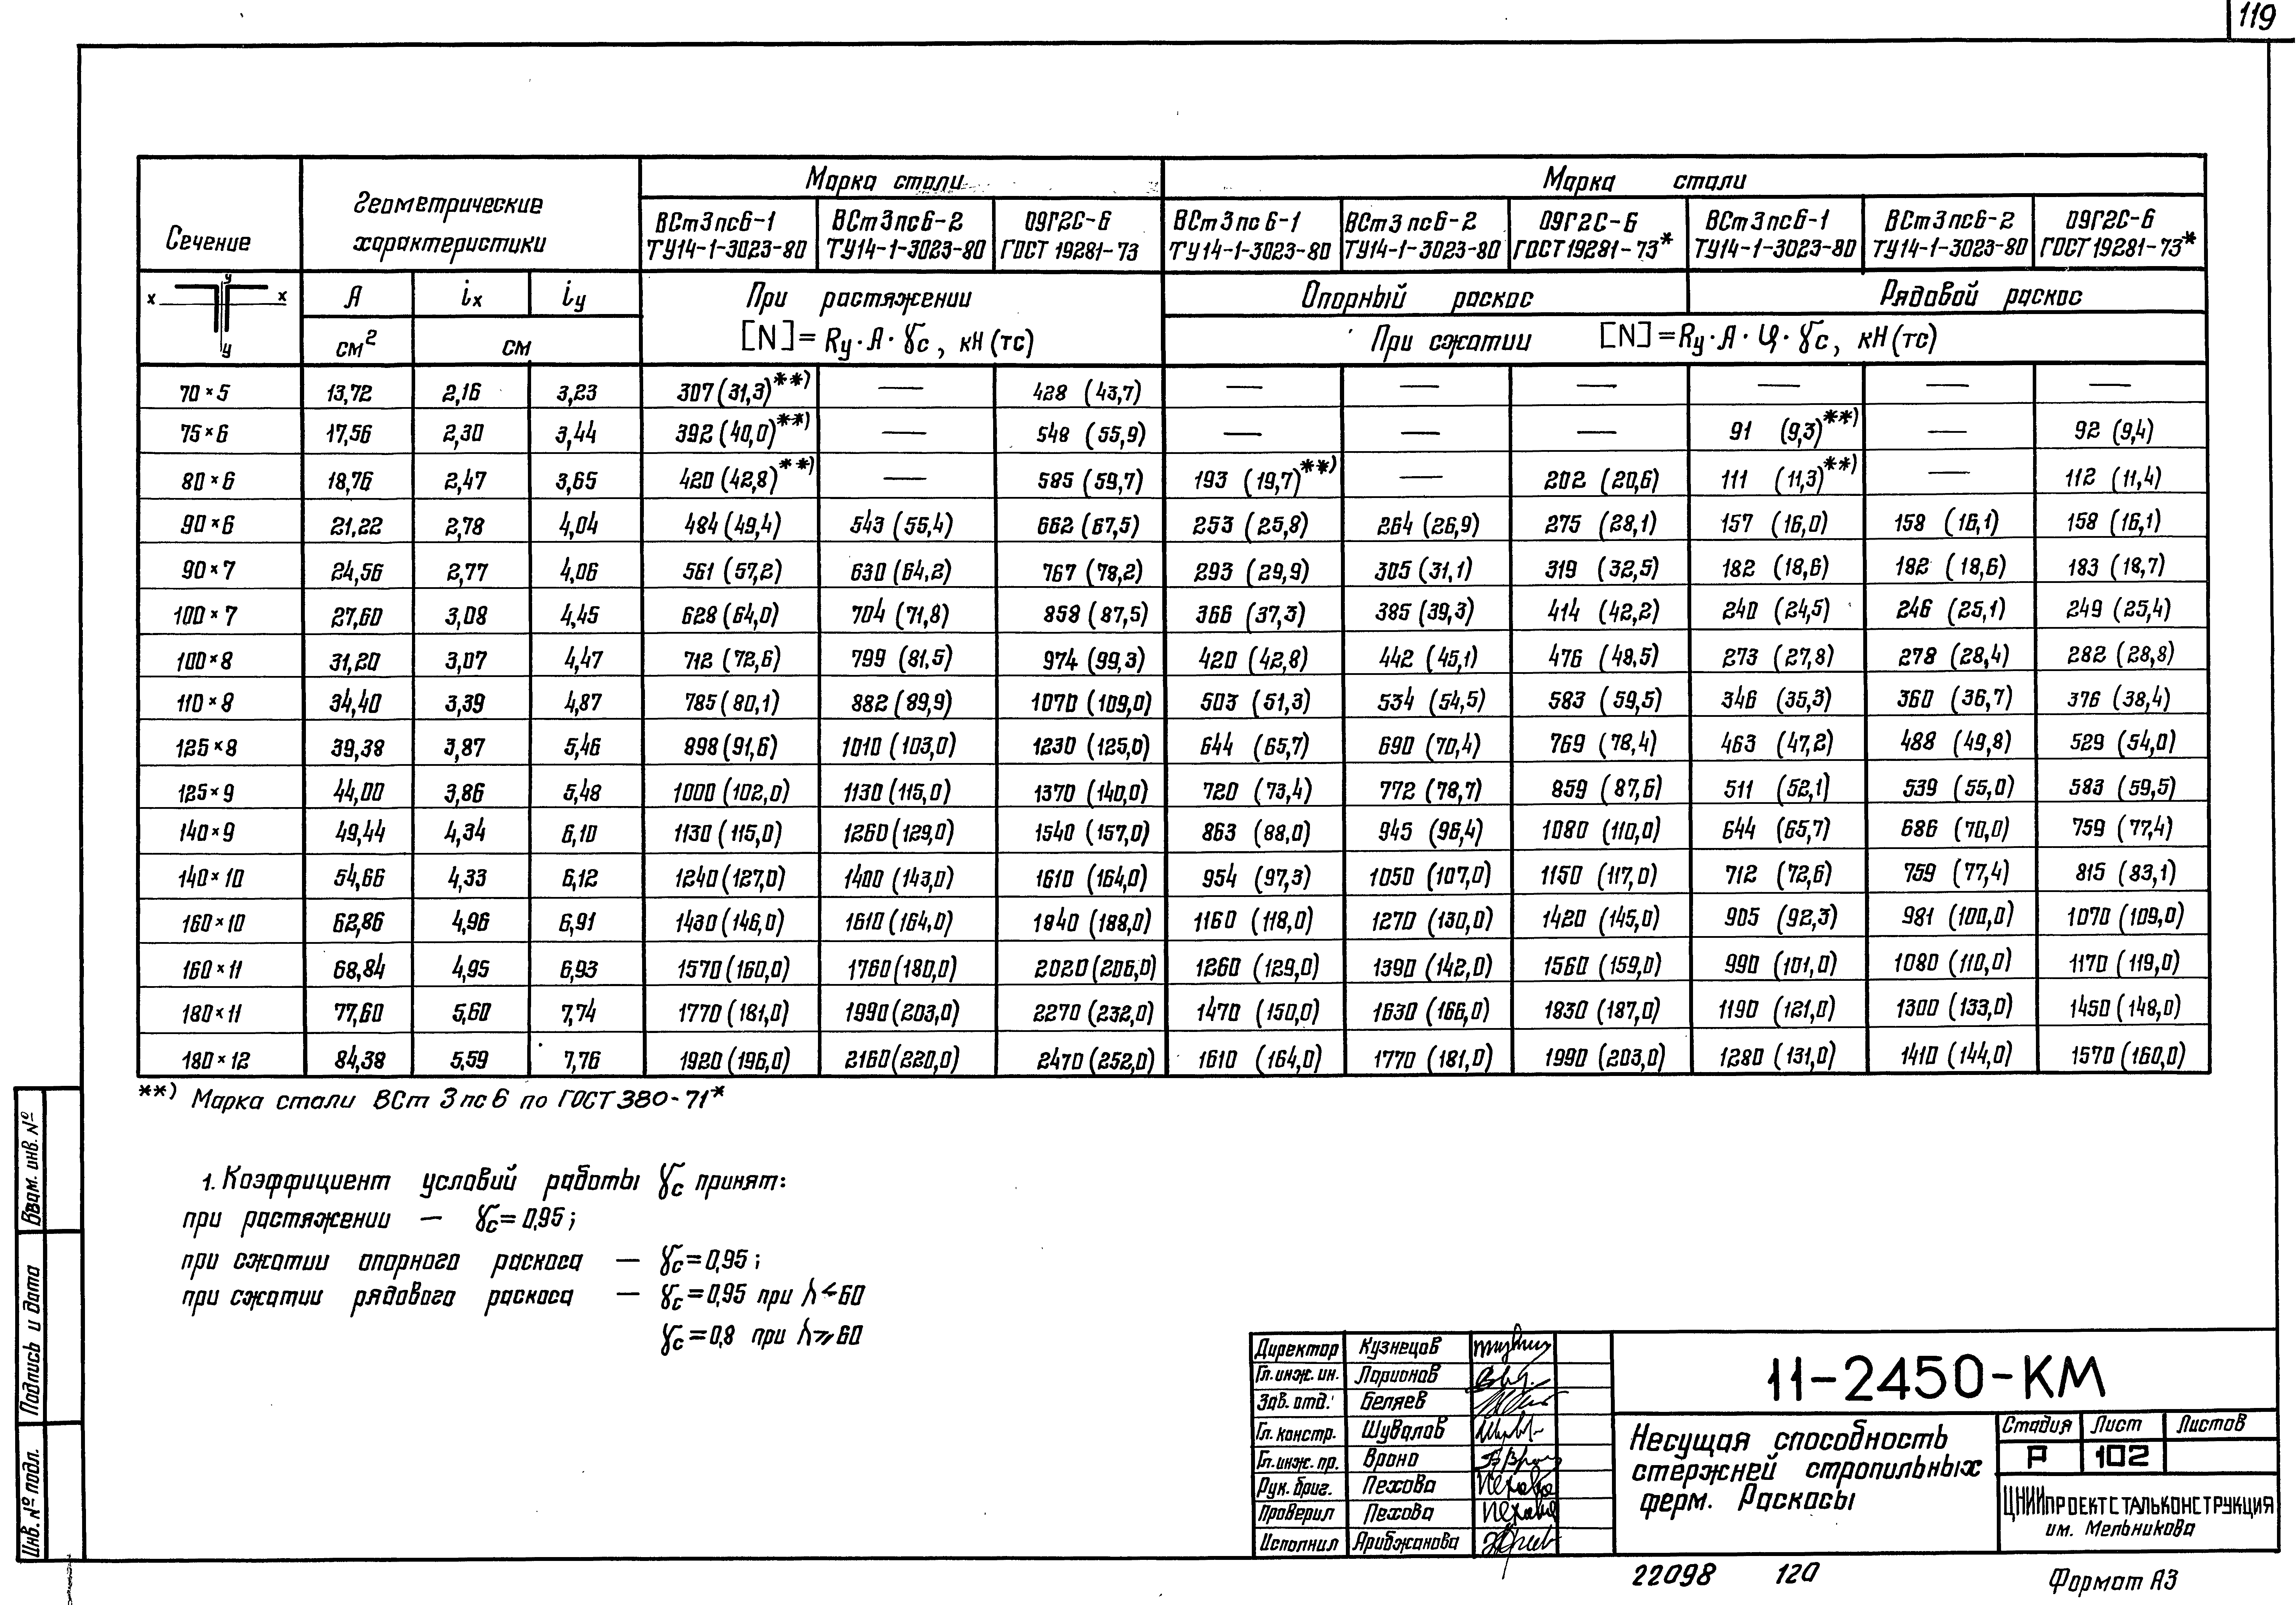 119
Сечение
Геометрические характеристики
Марка стали
Марка стали
ВСт3пс6-1 ТУ14-1-3023-80
ВСт3пс6-2 ТУ14-1-3023-80
09Г2С-6 ГОСТ 19281-73
ВСт3пс6-1 ТУ14-1-3023-80
ВСт3пс6-2 ТУ14-1-3023-80
09Г2С-6 ГОСТ 19281-73*
ВСт3пс6-1 ТУ14-1-3023-80
ВСт3пс6-2 ТУ14-1-3023-80
09Г2С-6 ГОСТ 19281-73*
x x y y
A iₓ i_y
При растяжении
Опорный раскос
Рядовой раскос
см² см
[N]=Rу·A·γс, кН(тс)
При сжатии [N]=Rу·A·φ·γс, кН(тс)
70×5 13,72 2,16 3,23 307(31,3)**) — 428 (43,7) — — — — — —
75×6 17,56 2,30 3,44 392(40,0)**) — 548 (55,9) — — — 91 (9,3)**) — 92 (9,4)
80×6 18,76 2,47 3,65 420(42,8)**) — 585 (59,7) 193 (19,7)**) — 202 (20,6) 111 (11,3)**) — 112 (11,4)
90×6 21,22 2,78 4,04 484(49,4) 543(55,4) 662(67,5) 253 (25,8) 264 (26,9) 275 (28,1) 157 (16,0) 158 (16,1) 158 (16,1)
90×7 24,56 2,77 4,06 561 (57,2) 630(64,2) 767 (78,2) 293 (29,9) 305(31,1) 319 (32,5) 182 (18,6) 182 (18,6) 183 (18,7)
100×7 27,60 3,08 4,45 628(64,0) 704(71,8) 858(87,5) 366 (37,3) 385(39,3) 414 (42,2) 240 (24,5) 246 (25,1) 249 (25,4)
100×8 31,20 3,07 4,47 712(72,6) 799 (81,5) 974(99,3) 420 (42,8) 442 (45,1) 476 (48,5) 273 (27,8) 278 (28,4) 282 (28,8)
110×8 34,40 3,39 4,87 785(80,1) 882(89,9) 1070 (109,0) 503 (51,3) 534 (54,5) 583 (59,5) 346 (35,3) 360 (36,7) 376 (38,4)
125×8 39,38 3,87 5,46 898(91,6) 1010 (103,0) 1230 (125,0) 644 (65,7) 690 (70,4) 769 (78,4) 463 (47,2) 488 (49,8) 529 (54,0)
125×9 44,00 3,86 5,48 1000 (102,0) 1130(115,0) 1370 (140,0) 720 (73,4) 772 (78,7) 859 (87,6) 511 (52,1) 539 (55,0) 583 (59,5)
140×9 49,44 4,34 6,10 1130 (115,0) 1260(129,0) 1540 (157,0) 863 (88,0) 945 (96,4) 1080 (110,0) 644 (65,7) 686 (70,0) 759 (77,4)
140×10 54,66 4,33 6,12 1240(127,0) 1400 (143,0) 1610 (164,0) 954 (97,3) 1050 (107,0) 1150 (117,0) 712 (72,6) 759 (77,4) 815 (83,1)
160×10 62,86 4,96 6,91 1430(146,0) 1610(164,0) 1840 (188,0) 1160 (118,0) 1270 (130,0) 1420 (145,0) 905 (92,3) 981 (100,0) 1070 (109,0)
160×11 68,84 4,95 6,93 1570(160,0) 1760(180,0) 2020(206,0) 1260 (129,0) 1390 (142,0) 1560 (159,0) 990 (101,0) 1080 (110,0) 1170 (119,0)
180×11 77,60 5,60 7,74 1770 (181,0) 1990(203,0) 2270 (232,0) 1470 (150,0) 1630 (166,0) 1830 (187,0) 1190 (121,0) 1300 (133,0) 1450 (148,0)
180×12 84,38 5,59 7,76 1920(196,0) 2160(220,0) 2470 (252,0) 1610 (164,0) 1770 (181,0) 1990 (203,0) 1280 (131,0) 1410 (144,0) 1570 (160,0)
**) Марка стали ВСт 3пс6 по ГОСТ 380-71*
1. Коэффициент условий работы γс принят:
при растяжении — γс=0,95;
при сжатии опорного раскоса — γс=0,95;
при сжатии рядового раскоса — γс=0,95 при λ<60
γс=0,8 при λ⩾60
Взам. инв. №
Подпись и дата
Инв. № подл.
Директор Кузнецов
Гл. инж. ин. Ларионов
Зав. отд. Беляев
Гл. констр. Шувалов
Гл. инж. пр. Вроно
Рук. бриг. Пехова
Проверил Пехова
Исполнил Арибжанова
11-2450-КМ
Несущая способность
стержней стропильных
ферм. Раскосы
Стадия Лист Листов
Р 102
ЦНИИПРОЕКТСТАЛЬКОНСТРУКЦИЯ
им. Мельникова
22098 120
Формат А3